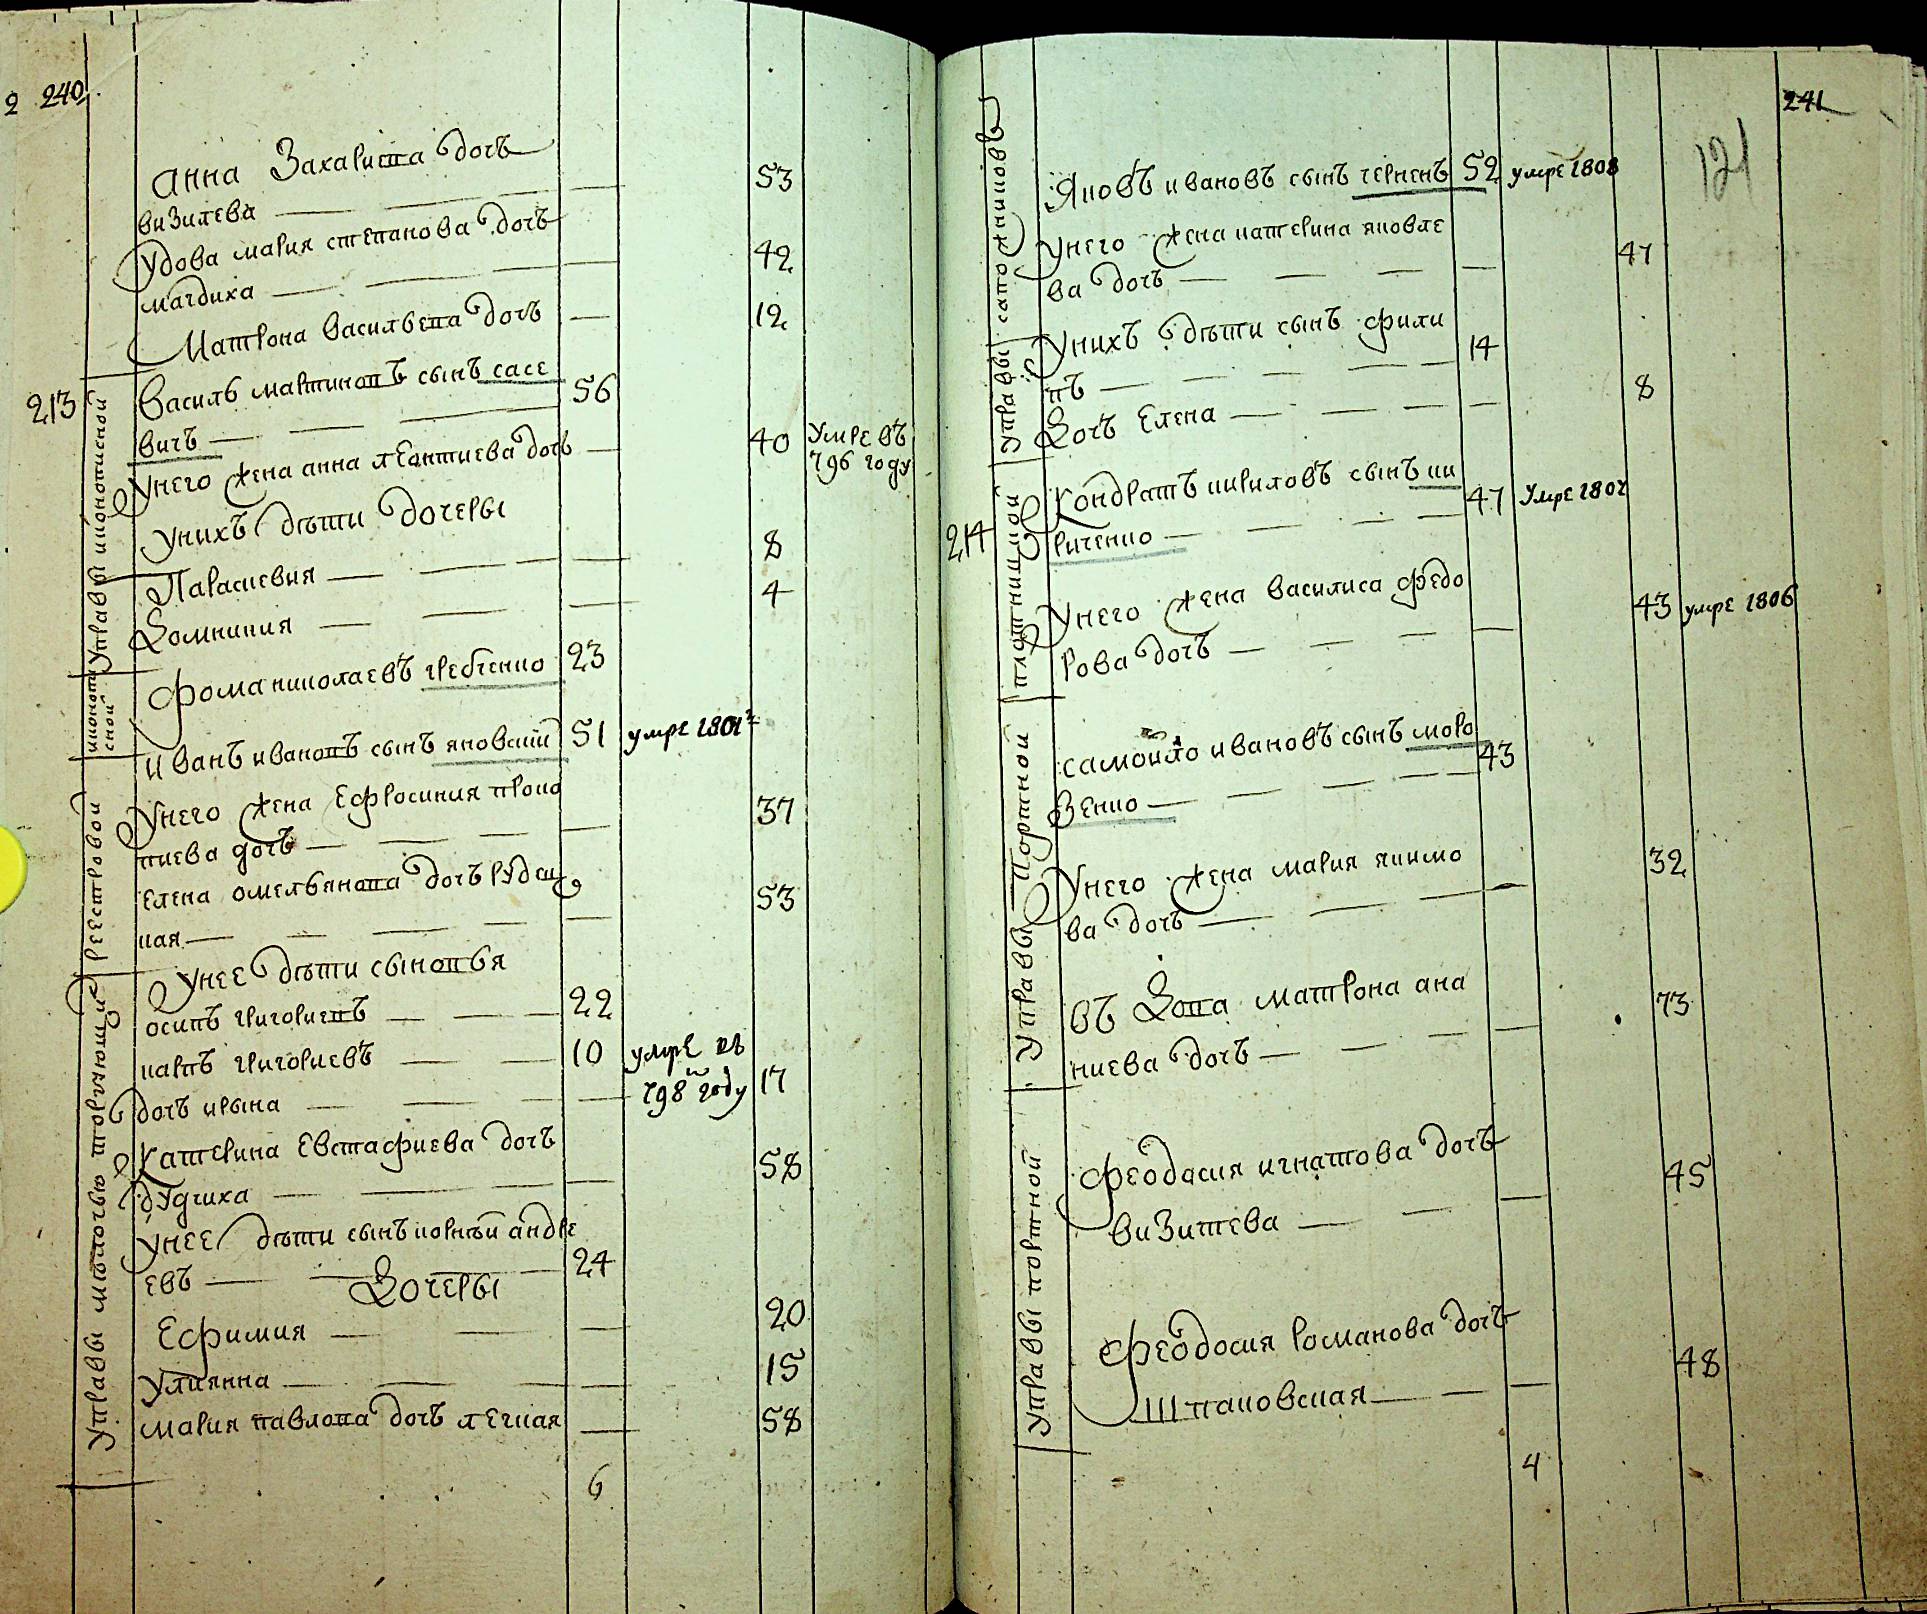 2 240
Анна Захариева дочь
визитева 53
Удова мария степанова дочъ
магдиха 42
Матрона васильева дочъ 12
213
Управы иконописной
Василь мартиновъ сынъ сасе
вичъ 56
Унего жена анна леонтиева дочь 40 умре въ
796 году
Унихъ дѣти дочеры
Параскевия 8
Домникия 4
иконопи
сной
Фома николаевъ гребченко 23
Реестровой
иванъ ивановъ сынъ яновский 51 умре 1801
Унего жена Ефросиния проко
пиева дочъ 37
Елена омельянова дочъ рудки
кая 53
Управы мѣлочью торгующих
Унее дѣти сыновья
осипъ григориевъ 22
карпъ григориевъ 10 умре въ
798 году
дочъ ирына 17
Катерина Евстафиева дочъ
дудчиха 58
Унее дѣти сынъ корнѣй андре
евъ 24
Дочеры
Ефимия 20
Улиянна 15
мария павлова дочъ легкая 58
6
241
121
Управы сапожницкой
Яковъ ивановъ сынъ черненъ 52 умре 1808
Унего жена катерина яковле
ва дочъ 47
Унихъ дѣти сынъ фили
пъ 14
Дочъ Елена 8
214
плотницкой
Кондратъ кириловъ сынъ ки
риченко 47 Умре 1807
Унего жена василиса федо
рова дочъ 43 умре 1806
Управы Портной
самойло ивановъ сынъ моро
зенко 43
Унего жена мария якимо
ва дочъ 32
въ Дова матрона ана
ниева дочъ 73
Управы портной
Феодосия игнатова дочъ
визитева 45
Феодосия романова дочъ
Шпаковская 48
4